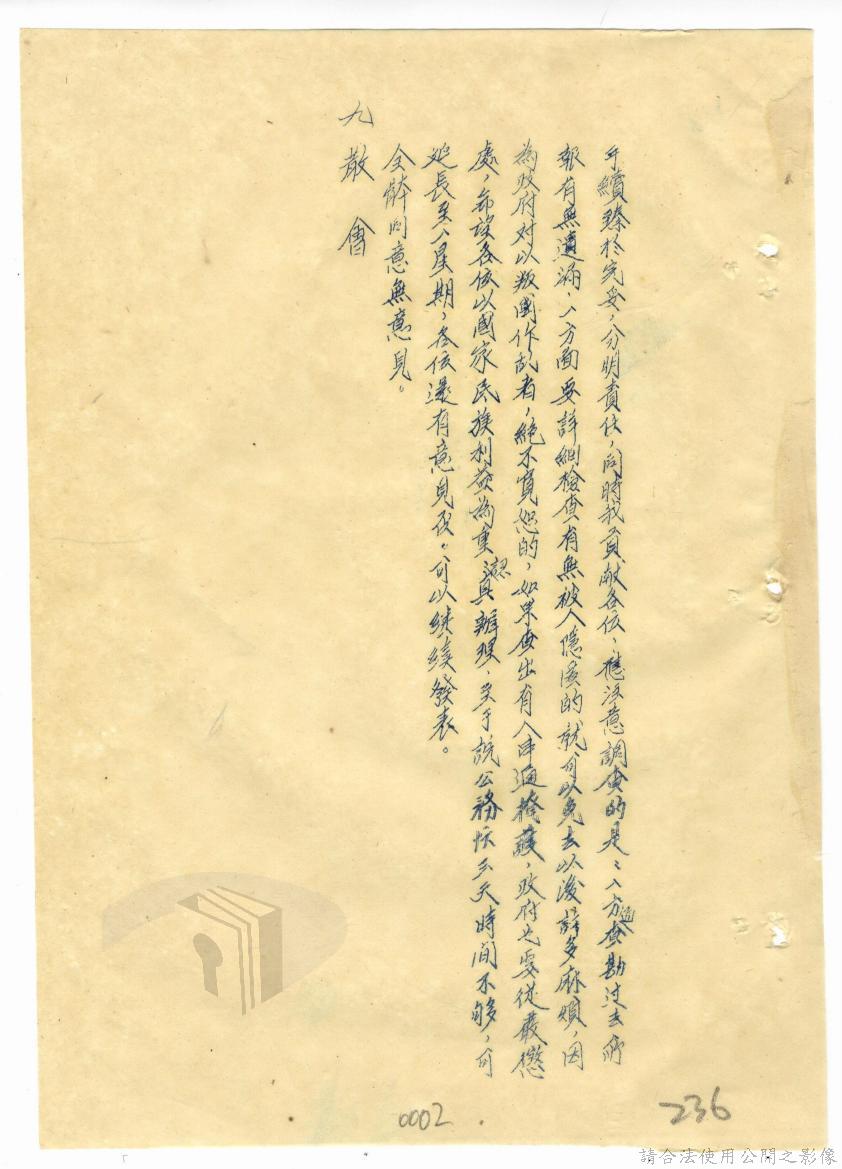 手續臻於完妥，分明責任，同時我貢献各位，應注意調查的是：一方面查勘过去所
報有無遺漏，一方面要詳細檢查有無被人隱匿的就可以免去以後許多麻煩，因
為政府对以叛国作乱者，絕不寬恕的，如果查出有人串通掩護，政府也要從嚴懲
處，希望各位以國家民族利益為重認真辦理，至于說公務忙三天時间不够，可
延長至一星期，各位還有意見否。可以继續發表。
全體同意無意見。
九 散 會
0002
236
請合法使用公開之影像